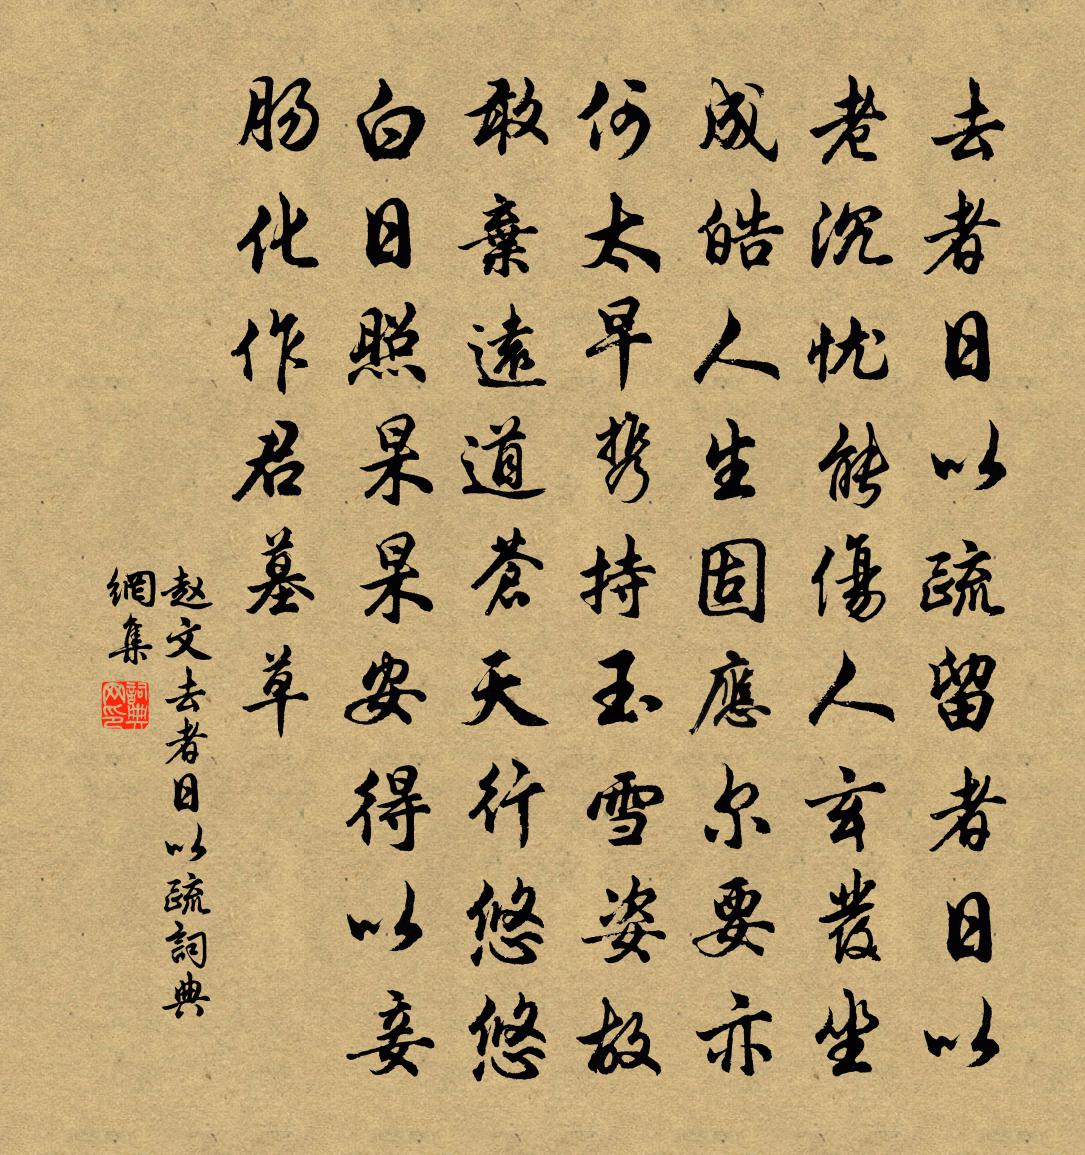 去者日以疏留者日以
老沉忧能傷人玄发坐
成皓人生固應尔要亦
何太早携持玉雪姿故
敢棄遠道蒼天行悠悠
白日照杲杲安得以妾
肠化作君墓草
赵文去者日以疏詞典
網集
詞典網印